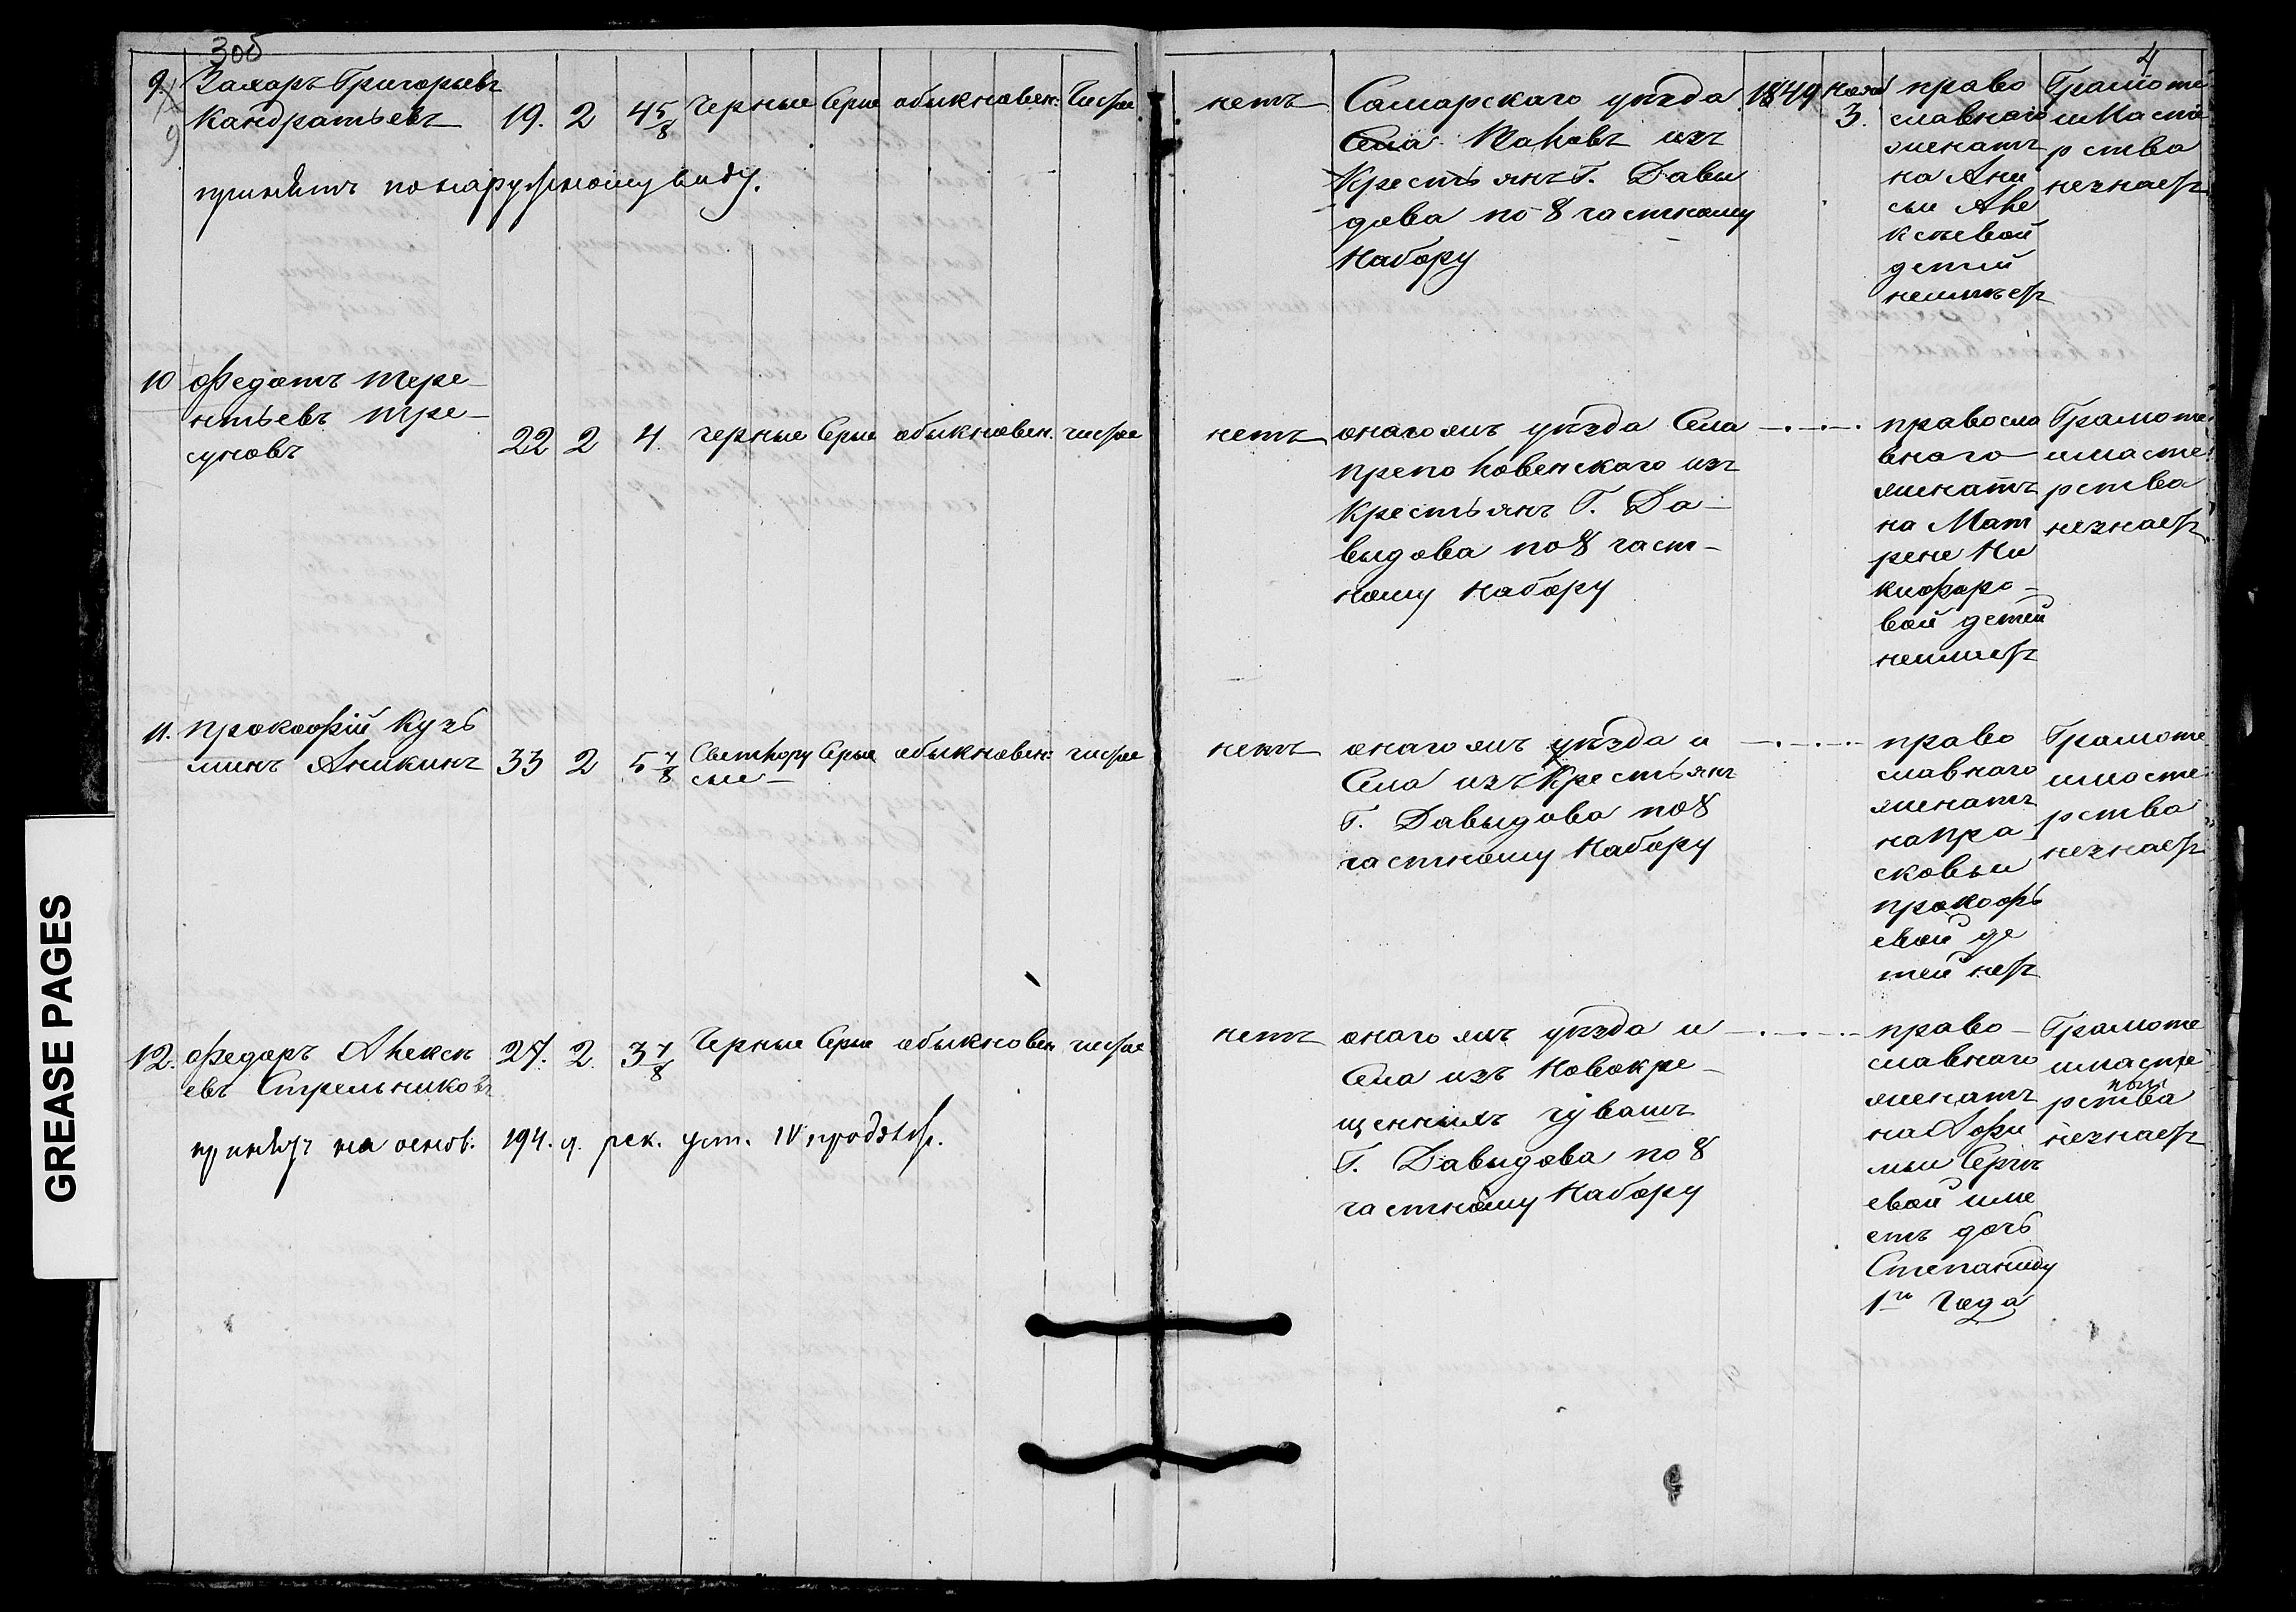 3об
4
9. Захаръ Григорьевъ
9
Кандратьевъ 19. 2 4 5/8 Черные Серые обыкновен: Чистое
принятъ по наружному виду.
нетъ Самарскаго уѣзда 1849 Нояб 3.
Села изъ
Крестьянъ Г. Давы
дова по 8 частному
Набору
право
славнаго
женатъ
на Ани
сьи Але
ксѣевой
детей
неимѣетъ
Грамоте
иМасте
рства
незнаетъ
10 Федотъ Тере-
нтьевъ Тре-
суновъ 22 2 4. черные Серые обыкновен. чистое
нетъ онагожъ уѣзда Села
преполовенскаго изъ
Крестьянъ Г. Да-
выдова по 8 част-
ному Набору
правосла
внаго
женатъ
на Мат
рене Ни
кифоро-
вой детей
неимеетъ
Грамоте
имасте
рства
незнаетъ
11. Прокофій Кузь
минъ Аникинъ 33 2 5 7/8 Светлору Серые обыкновен: чистое
сые-
нетъ онагожъ уѣзда и
Села изъ Крестьянъ
Г. Давыдова по 8
частному Набору
право
славнаго
женатъ
на Пра
сковьи
прокофь
евой де
тей нетъ
Грамоте
имасте
рства
незнаетъ
12. Федоръ Алексѣ 27. 2. 3 7/8 Черные Серые обыкновен чистое
евъ Стрельниковъ
принятъ на основ. 194. п. рек. уст. IV продолж.
нетъ онагожъ уѣзда и
Села изъ Новокре-
щенныхъ чувашъ
Г. Давыдова по 8
частному Набору
право-
славнаго
женатъ
на Афи
мьи Сергѣ
евой име
етъ дочь
Степаниду
1го Года
Грамоте
имасте
рства
незнаетъ
GREASE PAGES